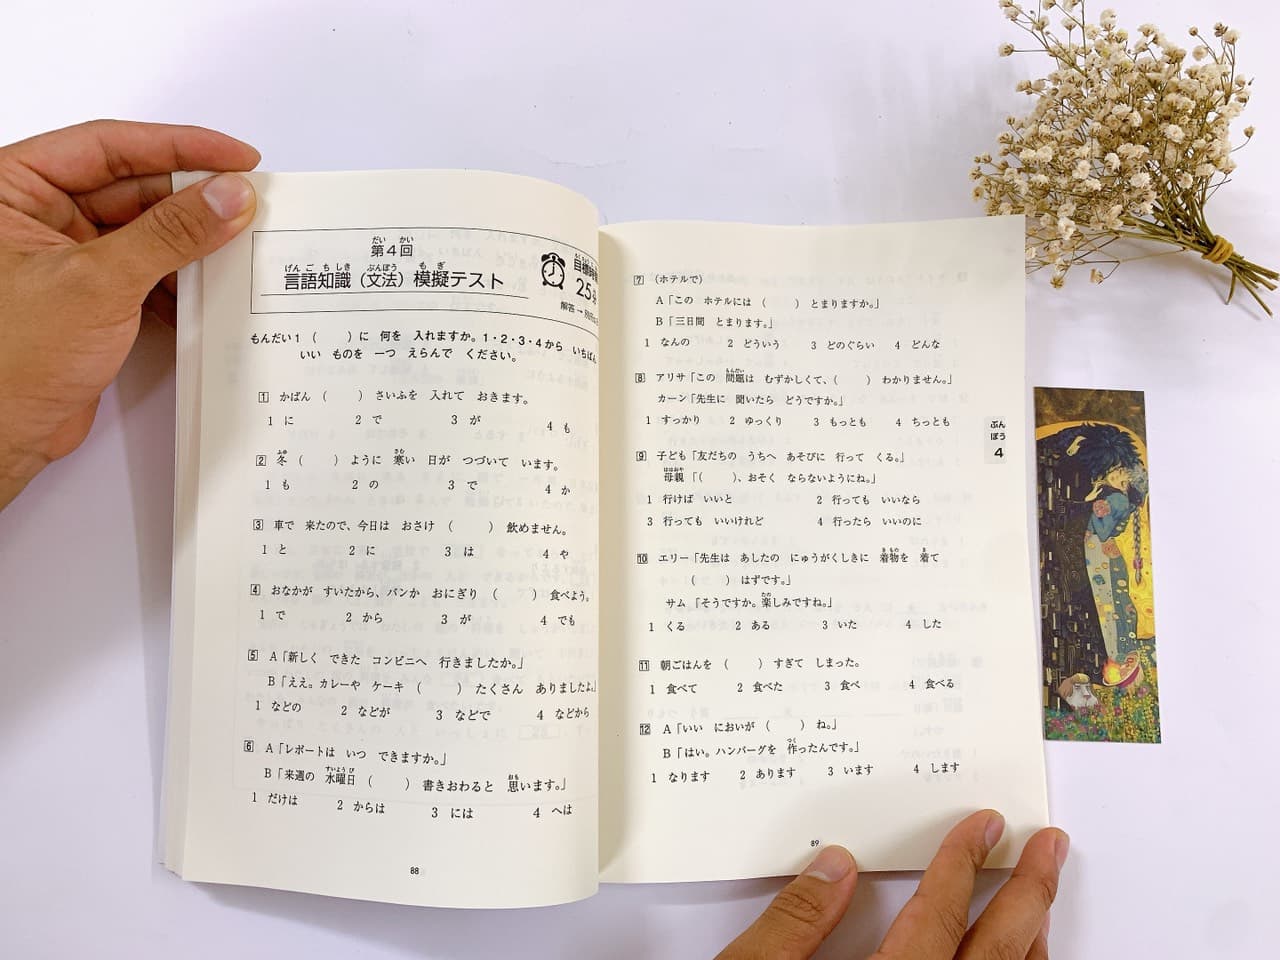 第4回
言語知識（文法）模擬テスト
25
解答→
もんだい1 （　　）に 何を 入れますか。1・2・3・4から いちばん
いい ものを 一つ えらんで ください。
1 かばん （　　） さいふを 入れて おきます。
1 に 2 で 3 が 4 も
2 冬 （　　） ように 寒い 日が つづいて います。
1 も 2 の 3 で 4 か
3 車で 来たので、今日は おさけ （　　） 飲めません。
1 と 2 に 3 は 4 や
4 おなかが すいたから、パンか おにぎり （　　） 食べよう。
1 で 2 から 3 が 4 でも
5 A「新しく できた コンビニへ 行きましたか。」
B「ええ。カレーや ケーキ （　　） たくさん ありましたよ。」
1 などの 2 などが 3 などで 4 などから
6 A「レポートは いつ できますか。」
B「来週の 水曜日 （　　） 書きおわると 思います。」
1 だけは 2 からは 3 には 4 へは
88
7 （ホテルで）
A「この ホテルには （　　） とまりますか。」
B「三日間 とまります。」
1 なんの 2 どういう 3 どのぐらい 4 どんな
8 アリサ「この 問題は むずかしくて、（　　） わかりません。」
カーン「先生に 聞いたら どうですか。」
1 すっかり 2 ゆっくり 3 もっとも 4 ちっとも
9 子ども「友だちの うちへ あそびに 行って くる。」
母親「（　　）、おそく ならないようにね。」
1 行けば いいと 2 行っても いいなら
3 行っても いいけれど 4 行ったら いいのに
10 エリー「先生は あしたの にゅうがくしきに 着物を 着て
（　　） はずです。」
サム「そうですか。楽しみですね。」
1 くる 2 ある 3 いた 4 した
11 朝ごはんを （　　） すぎて しまった。
1 食べて 2 食べた 3 食べ 4 食べる
12 A「いい においが （　　） ね。」
B「はい。ハンバーグを 作ったんです。」
1 なります 2 あります 3 います 4 します
89
ぶん
ぽう
4